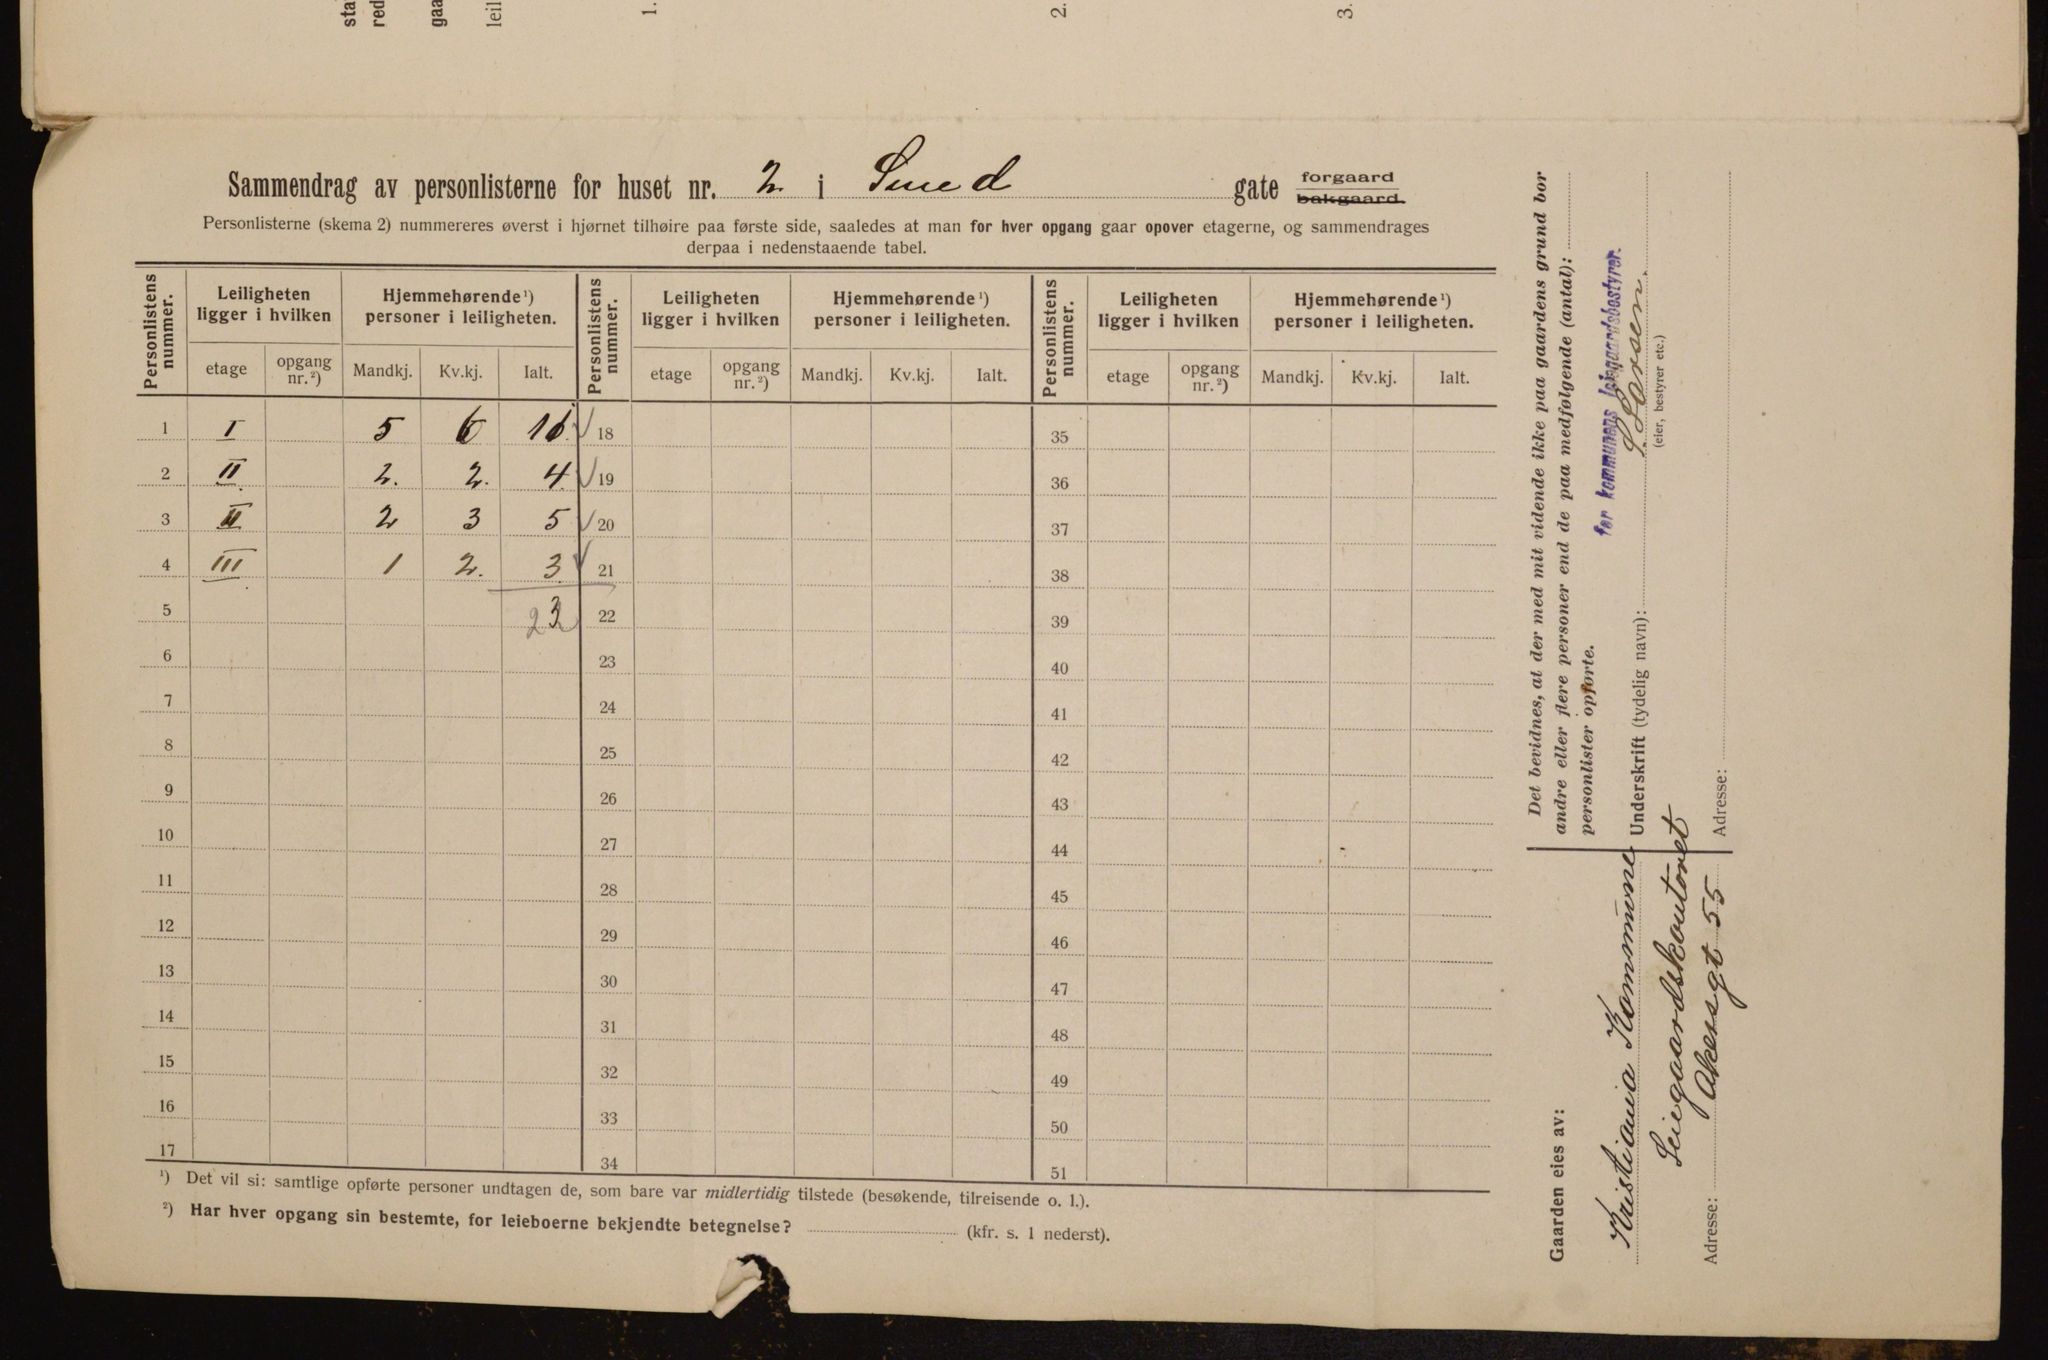 sta
red
gaa
leil
1.
2.
3.
Sammendrag av personlisterne for huset nr. 2 i Smed gate forgaard
bakgaard.
Personlisterne (skema 2) nummereres øverst i hjørnet tilhøire paa første side, saaledes at man for hver opgang gaar opover etagerne, og sammendrages
derpaa i nedenstaaende tabel.
Personlistens nummer. Leiligheten ligger i hvilken Hjemmehørende¹) personer i leiligheten. Personlistens nummer. Leiligheten ligger i hvilken Hjemmehørende¹) personer i leiligheten. Personlistens nummer. Leiligheten ligger i hvilken Hjemmehørende¹) personer i leiligheten.
etage opgang nr.²) Mandkj. Kv.kj. Ialt. etage opgang nr.²) Mandkj. Kv.kj. Ialt. etage opgang nr.²) Mandkj. Kv.kj. Ialt.
1 I 5 6 11 18 35
2 II 2. 2. 4 19 36
3 II 2 3 5 20 37
4 III 1 2. 3 21 38
5 23 22 39
6 23 40
7 24 41
8 25 42
9 26 43
10 27 44
11 28 45
12 29 46
13 30 47
14 31 48
15 32 49
16 33 50
17 34 51
¹) Det vil si: samtlige opførte personer undtagen de, som bare var midlertidig tilstede (besøkende, tilreisende o. l.).
²) Har hver opgang sin bestemte, for leieboerne bekjendte betegnelse? (kfr. s. 1 nederst).
Det bevidnes, at der med mit vidende ikke paa gaardens grund bor
andre eller flere personer end de paa medfølgende (antal):
personlister opførte.
for kommunens leiegaardsbestyrer.
Underskrift (tydelig navn): Larsen.
(eier, bestyrer etc.)
Adresse:
Gaarden eies av:
Kristiania Kommune
Leiegaardskontoret
Adresse: Akersgt 55